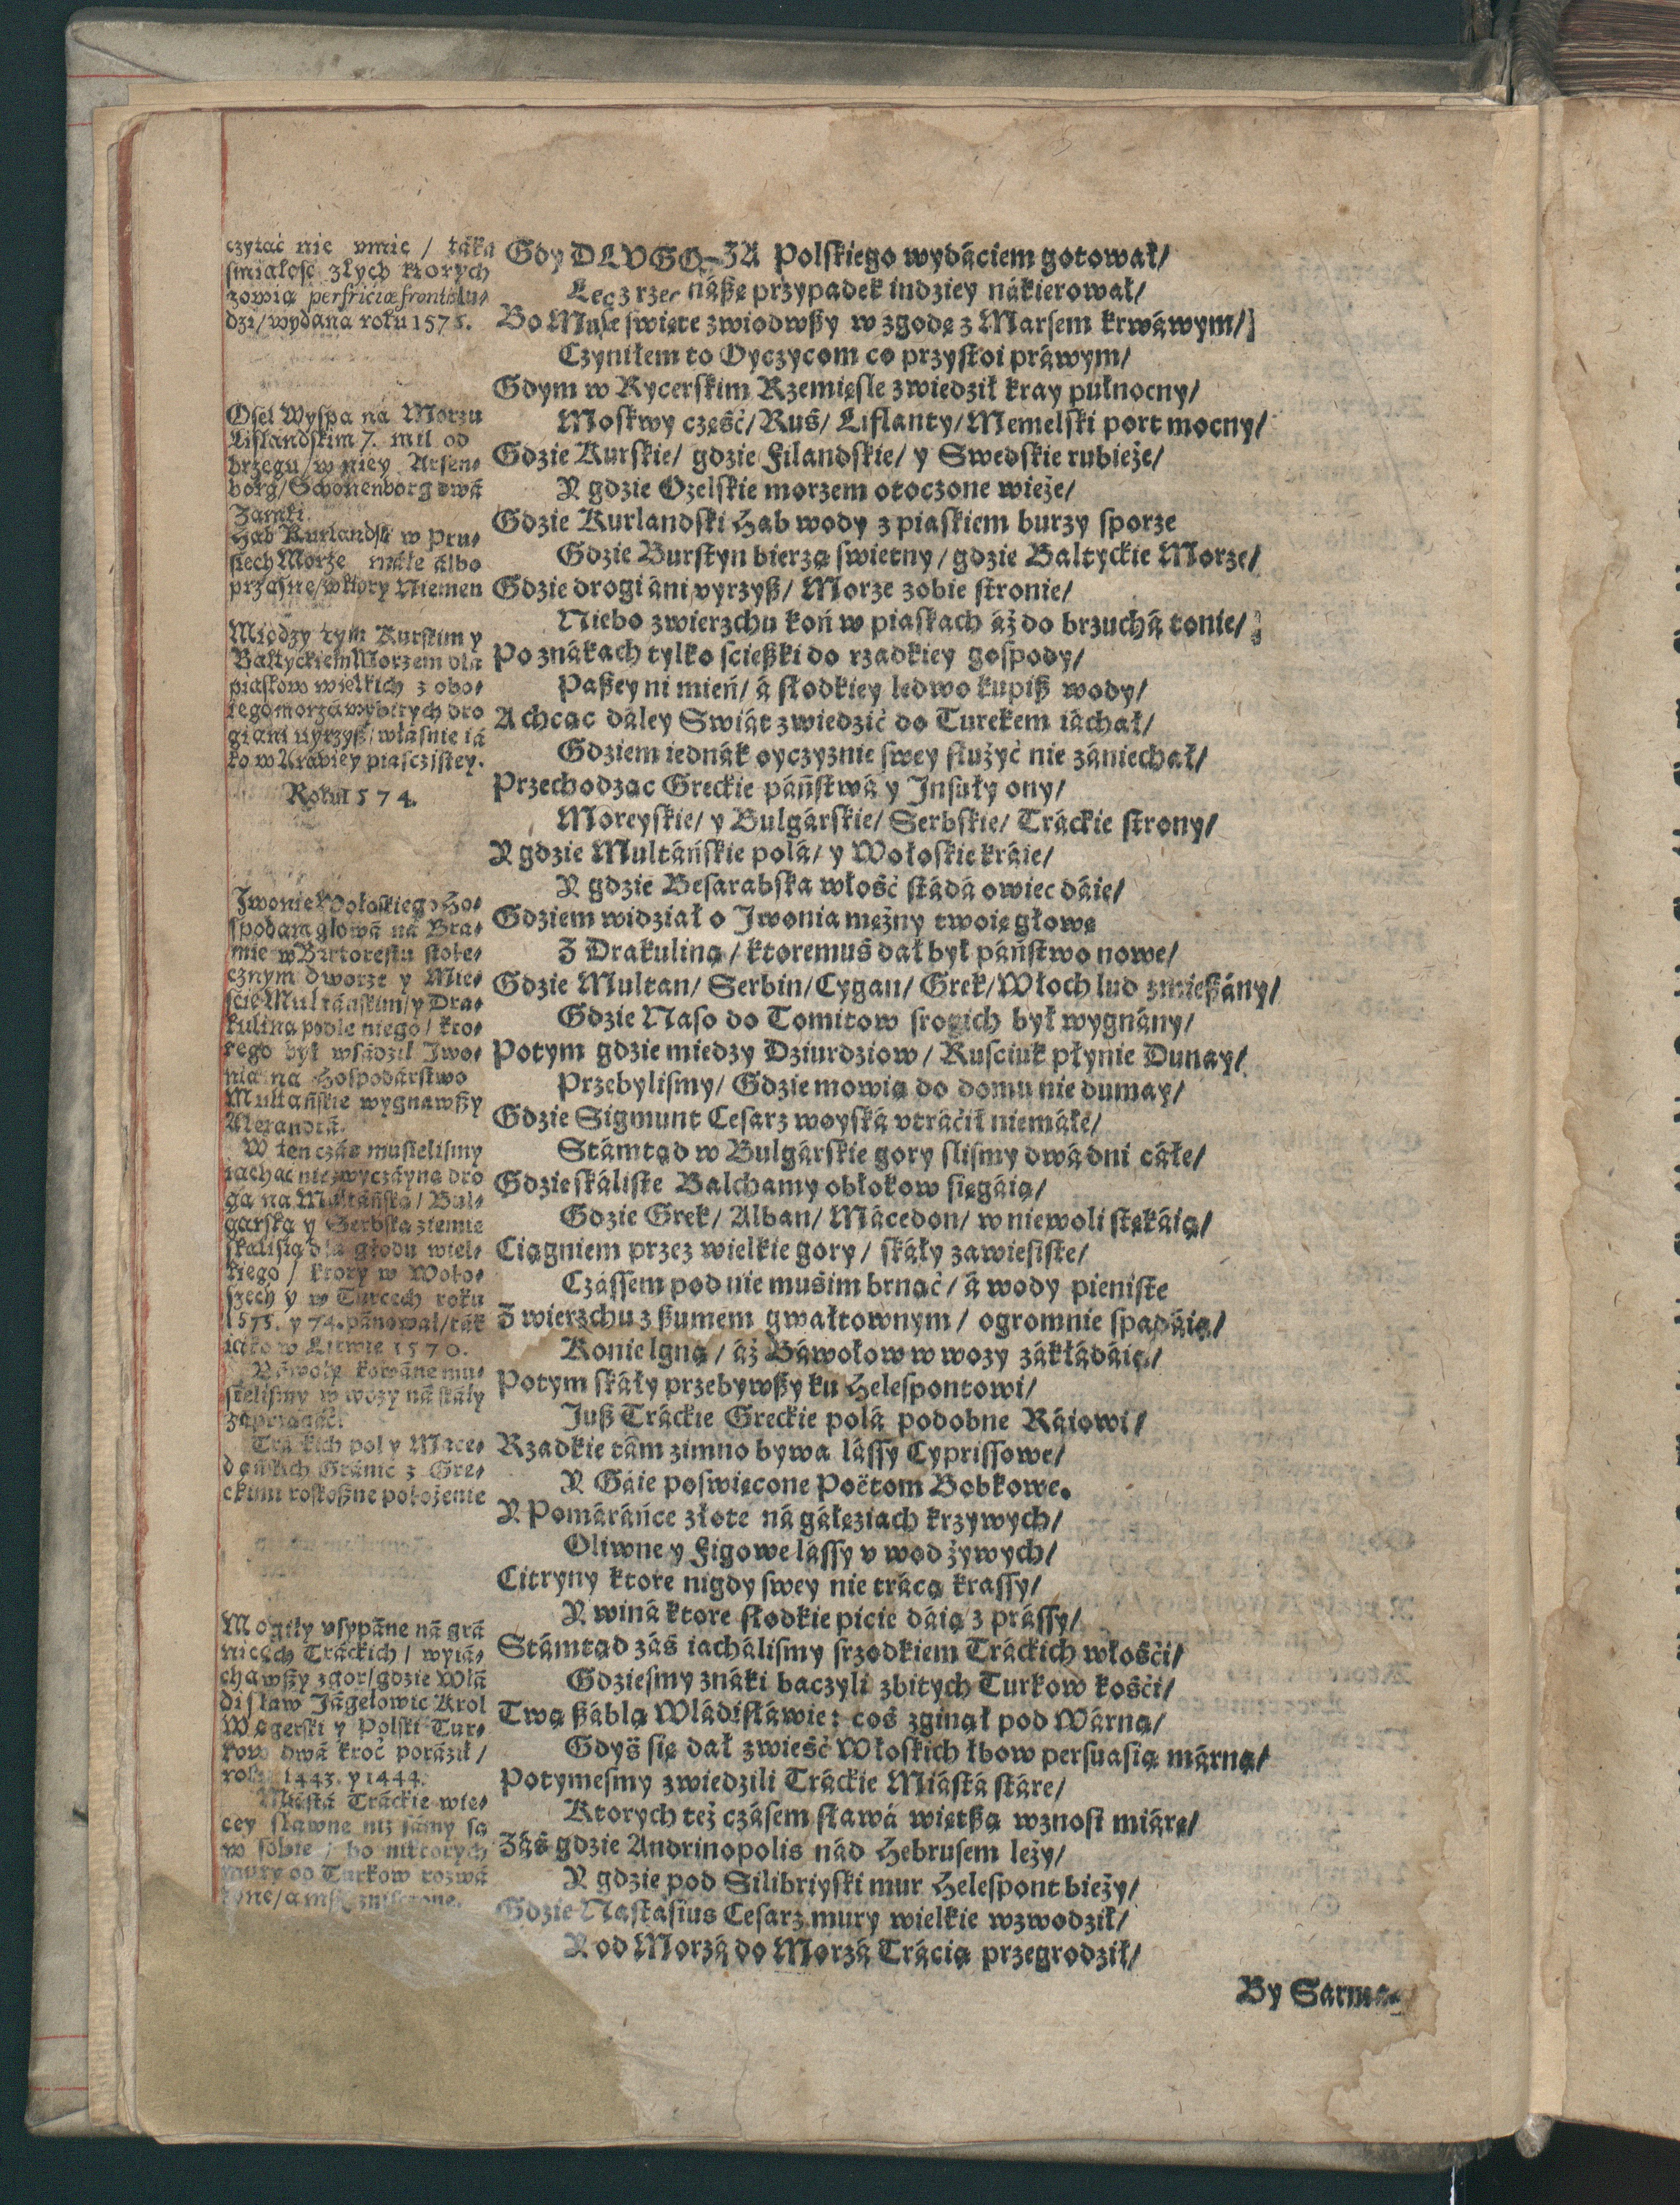 czytać nie vmie / táka
śmiałość złych ktorych
zowią perfrictæ frontis lu-
dzi/ wydana roku 1575.
Osel Wyspa ná Morzu
Liflandskim 7. mil od
brzegu/ w niey Arsen-
borg/ Schonenborg dwá
Zamki.
Hab Kurlandsk w Pru-
siech Morze máłe álbo
przásne/ w ktory Niemen
Między tym Kurskim y
Baltyckiem Morzem dla
piaskow wielkich z obo-
iego morzá wybitych dro
gi áni uyrzyß/ własnie iá
ko w Arábiey piasczistey.
Roku 1574.
Iwonie Wołoskiego Ho-
spodara głowá ná Bra-
mie w Bukorestu stołe-
cznym dworze y Mie-
ście Multáńskim/ y Dra-
kulina podle niego/ kto-
rego był wsádził Iwo-
nia na Hospodárstwo
Multáńskie wygnawßy
Alexandrá.
W ten czás musielismy
iachác niezwyczáyną dro
gą na Multáńską/ Bul-
garską y Serbską ziemie
skálistą dla głodu wiel-
kiego / ktory w Woło-
szech y w Turcech roku
1575. y 74. pánował/ ták
iáko w Litwie 1570.
Báwoły kowáne mu-
sielismy w wozy ná skáły
záprzągáć.
Tráckich pol y Mace-
dońskich Gránic z Gre-
ckimi roskoßne położenie
Mogiły vsypáne ná grá
nicách Tráckich / wyiá-
chawßy z gor/ gdzie Włá
disław Jágełowic Krol
Węgerski y Polski Tur-
kow dwá kroć poráził /
roku 1443. y 1444.
Miástá Tráckie wię-
cey sławne niż sámy są
w sobie / bo niktorych
mury od Turkow rozwá
Gdy DLVGO-ZA Polskiego wydáciem gotował/
Lecz rzec náßę przypadek indziey nákierował/
Bo Muse swięte zwiodwßy w zgodę z Marsem krwáwym/
Czyniłem to Oyczycom co przystoi práwym/
Gdym w Rycerskim Rzemięsle zwiedził kray pułnocny/
Moskwy część/ Ruś/ Liflanty/ Memelski port mocny/
Gdzie Kurskie/ gdzie Filandskie/ y Swedskie rubieże/
Y gdzie Ozelskie morzem otoczone wieże/
Gdzie Kurlandski Hab wody z piaskiem burzy sporze
Gdzie Burstyn bierzą swietny/ gdzie Baltyckie Morze/
Gdzie drogi áni vyrzyß/ Morze z obie stronie/
Niebo z wierzchu koń w piaskach áż do brzuchá tonie/
Po znákach tylko ścießki do rzadkiey gospody/
Paßey ni mień/ á słodkiey ledwo kupiß wody/
A chcąc dáley Swiát zwiedzić do Turekem iáchał/
Gdziem iednák oyczyznie swey służyć nie zániechał/
Przechodząc Greckie páństwá y Insuły ony/
Moreyskie/ y Bulgárskie/ Serbskie/ Tráckie strony/
Y gdzie Multáńskie polá/ y Wołoskie kráie/
Y gdzie Besarabska włość stádá owiec dáie/
Gdziem widział o Iwonia mężny twoię głowę
Z Drakuliną/ ktoremuś dał był páństwo nowe/
Gdzie Multan/ Serbin/ Cygan/ Grek/ Włoch lud zmießány/
Gdzie Naso do Tomitow srogich był wygnány/
Potym gdzie miedzy Dziurdziow/ Rusciuk płynie Dunay/
Przebylismy/ Gdzie mowią do domu nie dumay/
Gdzie Sigmunt Cesarz woyská vtráćił niemáłe/
Stámtąd w Bulgárskie gory slismy dwá dni cáłe/
Gdzie skáliste Balchamy obłokow sięgáią/
Gdzie Grek/ Alban/ Mácedon/ w niewoli stękáią/
Ciągniem przez wielkie gory/ skáły zawiesiste/
Czássem pod nie musim brnąć/ á wody pieniste
Z wierzchu z ßumem gwałtownym/ ogromnie spadáią/
Konie lgną/ áż Báwołow w wozy zákładáią/
Potym skáły przebywßy ku Helespontowi/
Juß Tráckie Greckie polá podobne Ráiowi/
Rzadkie tám zimno bywa lássy Cyprissowe/
Y Gáie poswięcone Poëtom Bobkowe.
Y Pomáráńce złote ná gáłęziach krzywych/
Oliwne y Figowe lássy v wod żywych/
Citryny ktore nigdy swey nie trácą krassy/
Y winá ktore słodkie picie dáią z prássy/
Stámtąd záś iachálismy srzodkiem Tráckich włośći/
Gdziesmy znáki baczyli zbitych Turkow kośći/
Twą ßáblą Władisłáwie: coś zginął pod Wárną/
Gdyś się dał zwieść Włoskich łbow persuasią márną/
Potymesmy zwiedzili Tráckie Miástá stáre/
Ktorych też czásem sławá więtßą wznosi miárę/
Záś gdzie Andrinopolis nád Hebrusem leży/
Y gdzie pod Silibriyski mur Helespont bieży/
Gdzie Nastásius Cesarz mury wielkie wzwodził/
Y od Morzá do Morzá Trácią przegrodził/
By Sarma-